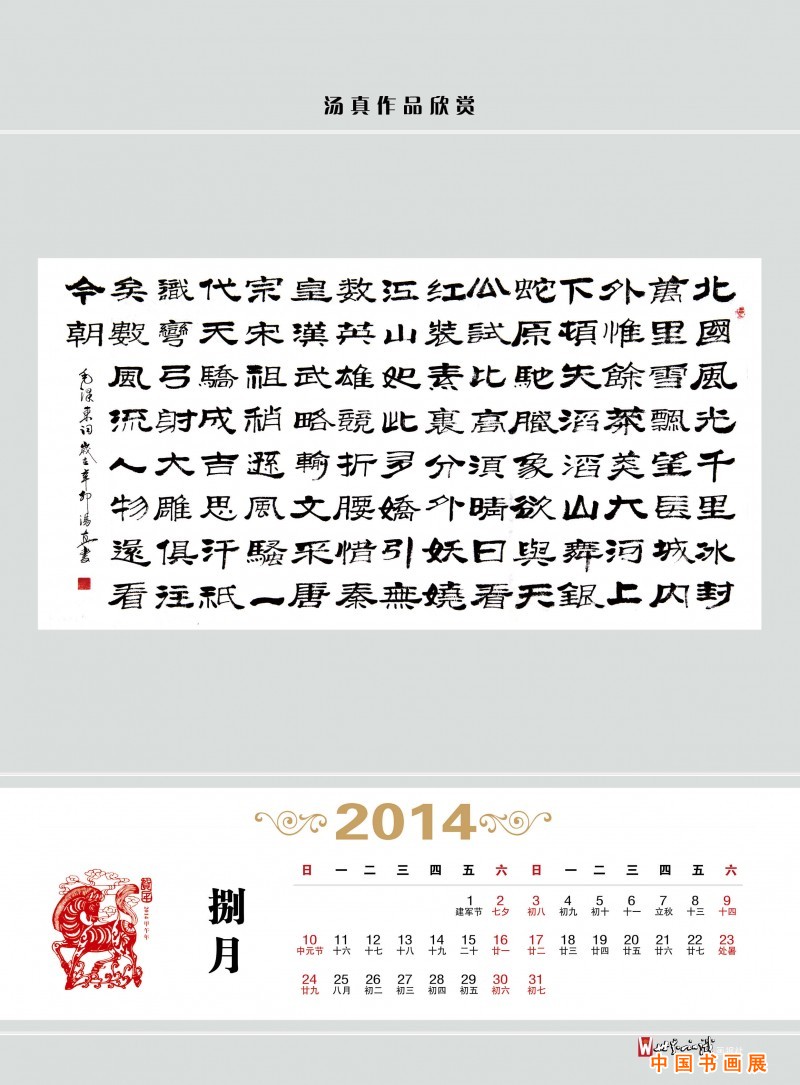 汤真作品欣赏
北國風光千里冰封
萬里雪飄望長城内
外惟餘莽莽大河上
下頓失滔滔山舞銀
蛇原馳臘象欲與天
公試比高須晴日看
红装素裹分外妖嬈
江山如此多嬌引無
数英雄競折腰惜秦
皇漢武略輸文采唐
宗宋祖稍遜風騷一
代天驕成吉思汗祇
識彎弓射大雕俱往
矣數風流人物還看
今朝
毛澤東词 歲在辛卯 湯真書
2014
捌月
2014 甲午年
日 一 二 三 四 五 六 日 一 二 三 四 五 六
1 2 3 4 5 6 7 8 9
建军节 七夕 初八 初九 初十 十一 立秋 十三 十四
10 11 12 13 14 15 16 17 18 19 20 21 22 23
中元节 十六 十七 十八 十九 二十 廿一 廿二 廿三 廿四 廿五 廿六 廿七 处暑
24 25 26 27 28 29 30 31
廿九 八月 初二 初三 初四 初五 初六 初七
中国书画展